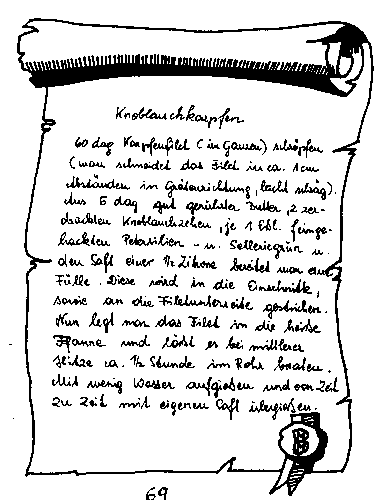 Knoblauchkarpfen
60 dag Karpfenfilet (im Ganzen) schröpfen
(man schneidet das Filet in ca. 1cm
Abständen in Grätenrichtung, leicht schräg).
Aus 5 dag gut gerührter Butter, 2 zer-
drückten Knoblauchzehen, je 1 Eßl. feinge-
hackten Petersilien- u. Selleriegrün u.
den Saft einer ½ Zitrone bereitet man die
Fülle. Diese wird in die Einschnitte,
sowie an die Filetunterseite gestrichen.
Nun legt man das Filet in die heiße
Pfanne und läßt es bei mittlerer
Hitze ca. ½ Stunde im Rohr braten.
Mit wenig Wasser aufgießen und von Zeit
zu Zeit mit eigenem Saft übergießen.
69